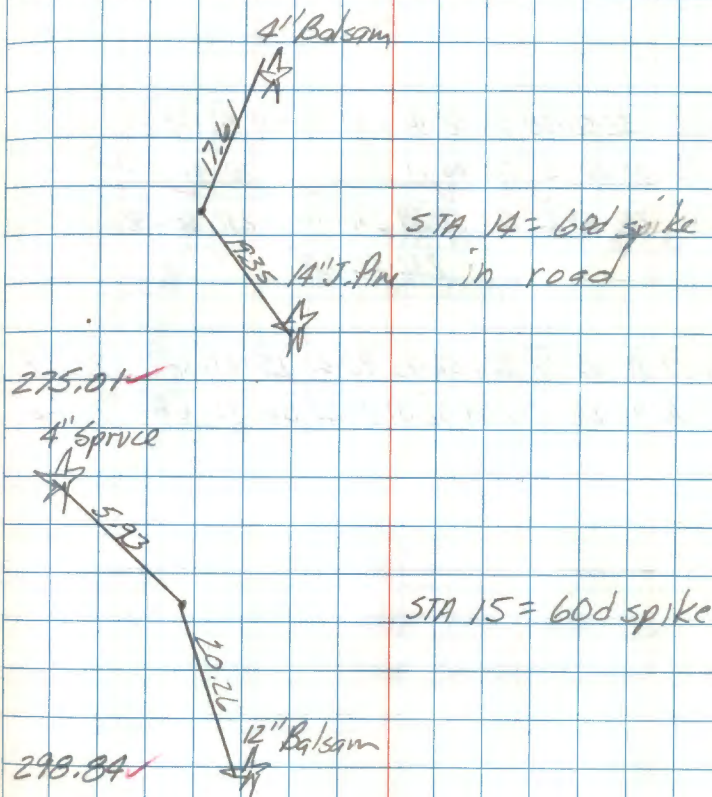 4" Balsam
17.61
STA 14 = 60d spike
in road
19.35
14" J. Pine
275.01 ✓
4" Spruce
5.93
STA 15 = 60d spike
20.26
12" Balsam
298.84 ✓